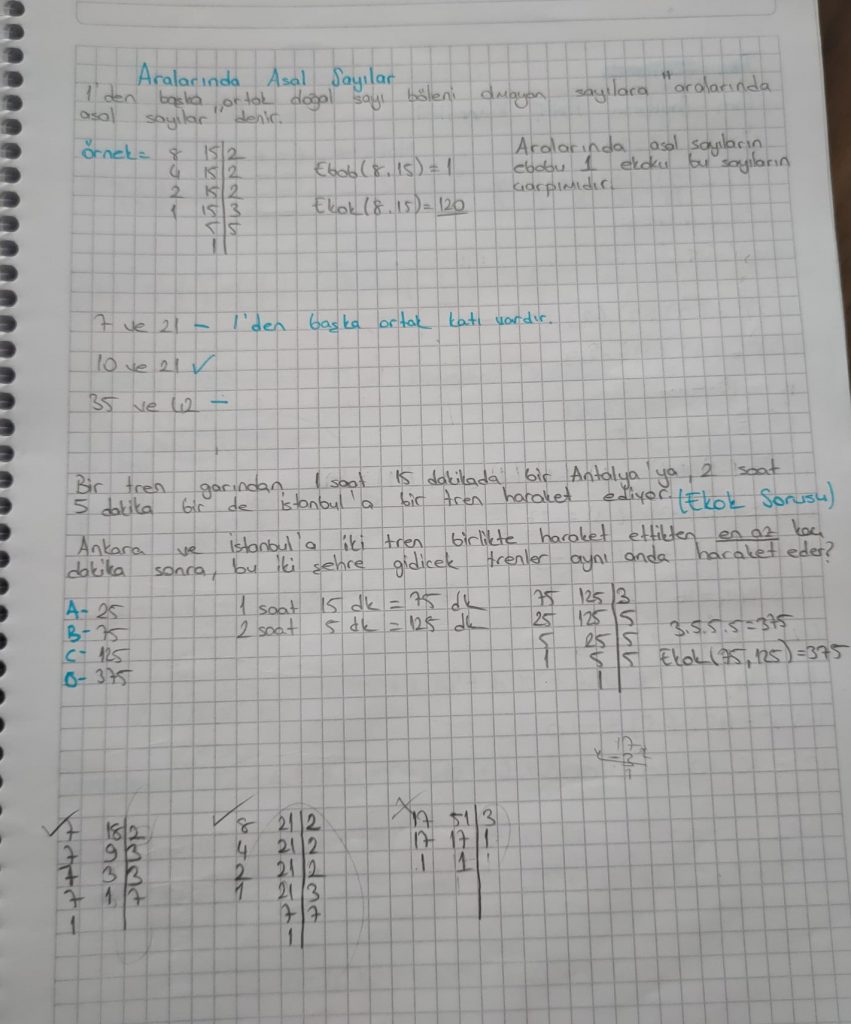 Aralarında Asal Sayılar
1'den başka ortak doğal sayı böleni olmayan sayılara "aralarında
asal sayılar" denir.
örnek= 8 15|2
4 15|2
2 15|2
1 15|3
5|5
1|
Ebob(8.15)=1
Ekok(8.15)=120
Aralarında asal sayıların
ebobu 1 ekoku bu sayıların
çarpımıdır.
7 ve 21 – 1'den başka ortak katı vardır.
10 ve 21 ✓
35 ve 42 –
Bir tren garından 1 saat 15 dakikada bir Antalya'ya, 2 saat
5 dakika bir de istanbul'a bir tren haraket ediyor (Ekok Sorusu)
Ankara ve istanbul'a iki tren birlikte haraket ettikten en az kaç
dakika sonra, bu iki şehre gidicek trenler aynı anda haraket eder?
A- 25
B- 75
C- 125
D- 375
1 saat 15 dk = 75 dk
2 saat 5 dk = 125 dk
75 125|3
25 125|5
5 25|5
1 5|5
1|
3.5.5.5=375
Ekok(75,125)=375
✓ 7 18|2
7 9|3
7 3|3
7 1|7
1
✓ 8 21|2
4 21|2
2 21|2
1 21|3
7|7
1|
X 17 51|3
17 17|1
1 1|